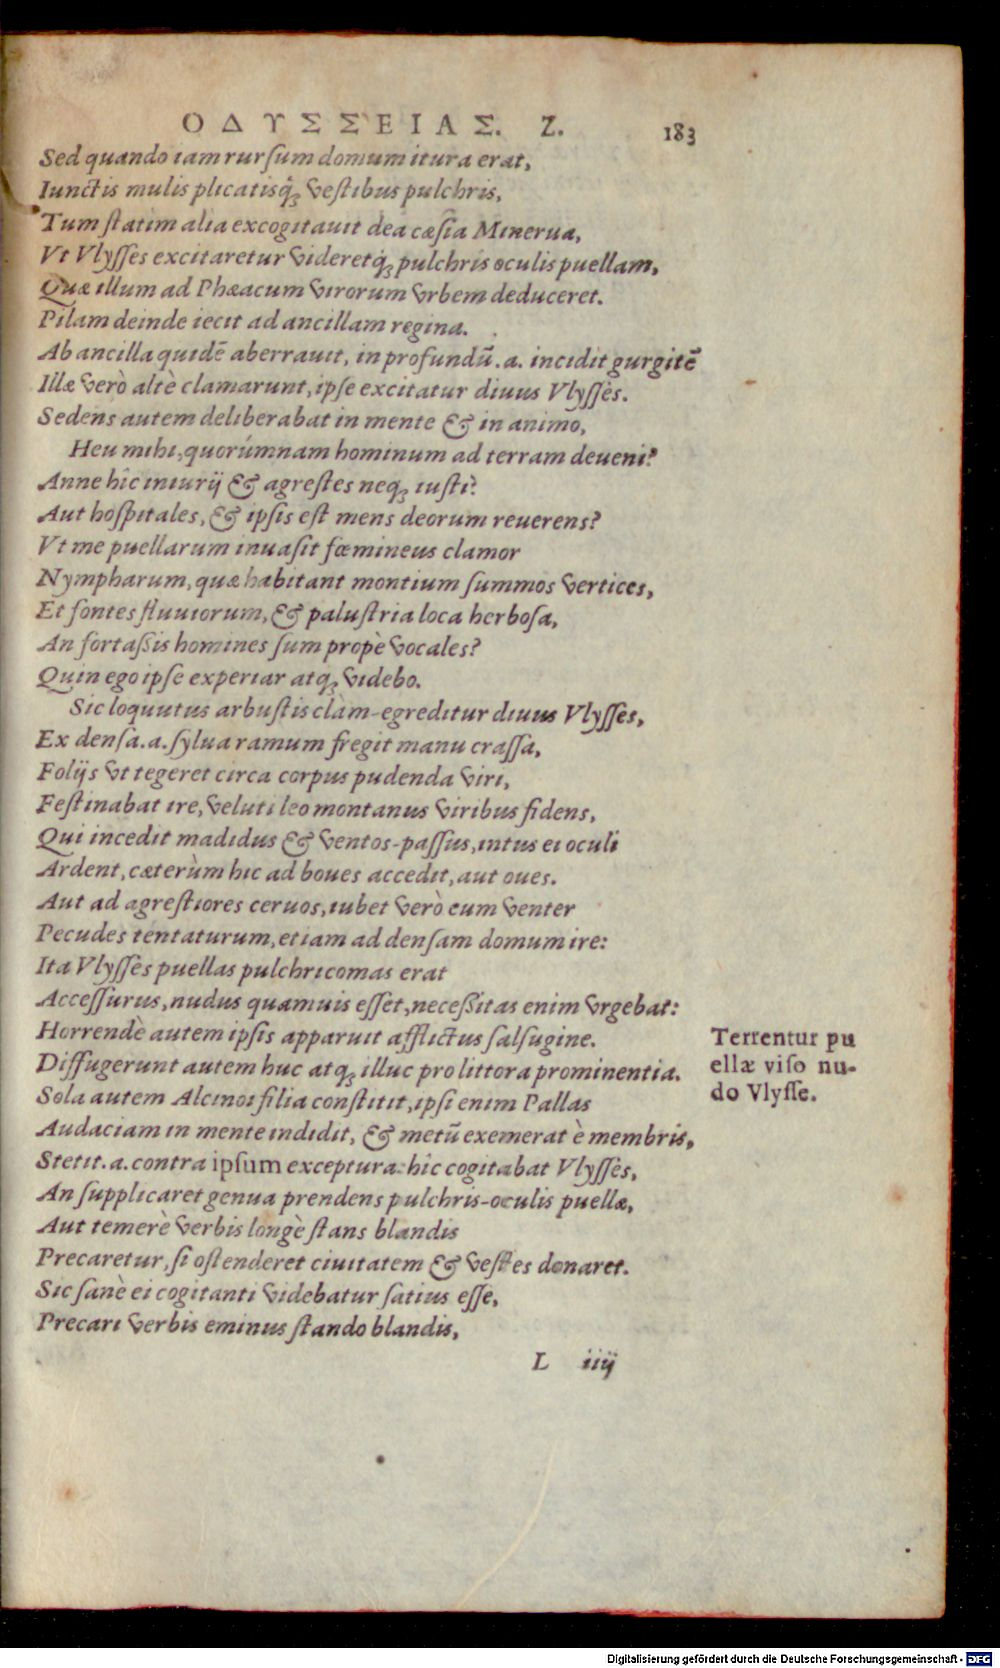 ΟΔΥΣΣΕΙΑΣ. Ζ. 183
Sed quando iam rursum domum itura erat,
Iunctis mulis plicatisq́; vestibus pulchris,
Tum statim alia excogitauit dea cæsia Minerua,
Vt Vlysses excitaretur videretq́; pulchris oculis puellam,
Quæ illum ad Phæacum virorum vrbem deduceret.
Pilam deinde iecit ad ancillam regina.
Ab ancilla quidē aberrauit, in profundū .a. incidit gurgitē
Illæ verò altè clamarunt, ipse excitatur diuus Vlysses.
Sedens autem deliberabat in mente & in animo,
Heu mihi, quorúmnam hominum ad terram deueni?
Anne hîc iniurij & agrestes neq; iusti?
Aut hospitales, & ipsis est mens deorum reuerens?
Vt me puellarum inuasit fœmineus clamor
Nympharum, quæ habitant montium summos vertices,
Et fontes fluuiorum, & palustria loca herbosa,
An fortaßis homines sum propè vocales?
Quin ego ipse experiar atq; videbo.
Sic loquutus arbustis clàm-egreditur diuus Vlysses,
Ex densa .a. sylua ramum fregit manu crassa,
Folijs vt tegeret circa corpus pudenda viri,
Festinabat ire, veluti leo montanus viribus fidens,
Qui incedit madidus & ventos-passus, intus ei oculi
Ardent, cæterùm hic ad boues accedit, aut oues.
Aut ad agrestiores ceruos, iubet verò eum venter
Pecudes tentaturum, etiam ad densam domum ire:
Ita Vlysses puellas pulchricomas erat
Accessurus, nudus quamuis esset, neceßitas enim vrgebat:
Horrendè autem ipsis apparuit afflictus salsugine.
Diffugerunt autem huc atq; illuc pro littora prominentia.
Sola autem Alcinoi filia constitit, ipsi enim Pallas
Audaciam in mente indidit, & metū exemerat è membris,
Stetit .a. contra ipsum exceptura: hîc cogitabat Vlysses,
An supplicaret genua prendens pulchris-oculis puellæ,
Aut temerè verbis longè stans blandis
Precaretur, si ostenderet ciuitatem & vestes donaret.
Sic sanè ei cogitanti videbatur satius esse,
Precari verbis eminus stando blandis,
L iiij
Terrentur pu
ellæ viso nu-
do Vlysse.
Digitalisierung gefördert durch die Deutsche Forschungsgemeinschaft - DFG